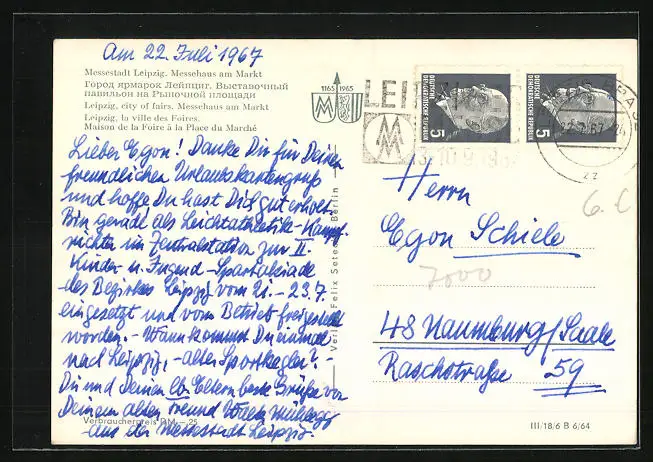 Am 22. Juli 1967
Messestadt Leipzig. Messehaus am Markt
Город ярмарок Лейпциг. Выставочный
павильон на Рыночной площади
Leipzig, city of fairs. Messehaus am Markt
Leipzig, la ville des Foires.
Maison de la Foire à la Place du Marché
1165 1965
Lieber Egon! Danke Dir für Deinen
freundlichen Urlaubskartengruß
und hoffe Du hast Dich gut erholt.
Bin gerade als Leichtathletik-Kampf-
richter im Zentralstadion zur II.
Kinder u. Jugend-Spartakiade
des Bezirkes Leipzig vom 21. - 23.7.
eingesetzt und vom Betrieb freigestellt
worden. - Wann kommst Du einmal
nach Leipzig, - alter Sportkegler? -
Du und Deinen lb. Eltern beste Grüße von
Deinem alten Freund
aus der Messestadt Leipzig.
Verbraucherpreis DM -,25
Berlin
DEUTSCHE DEMOKRATISCHE REPUBLIK
5
DEUTSCHE DEMOKRATISCHE REPUBLIK
5
Herrn
Egon Schiele
7000
48 Naumburg/Saale
Raschstraße 59
III/18/6 B 6/64